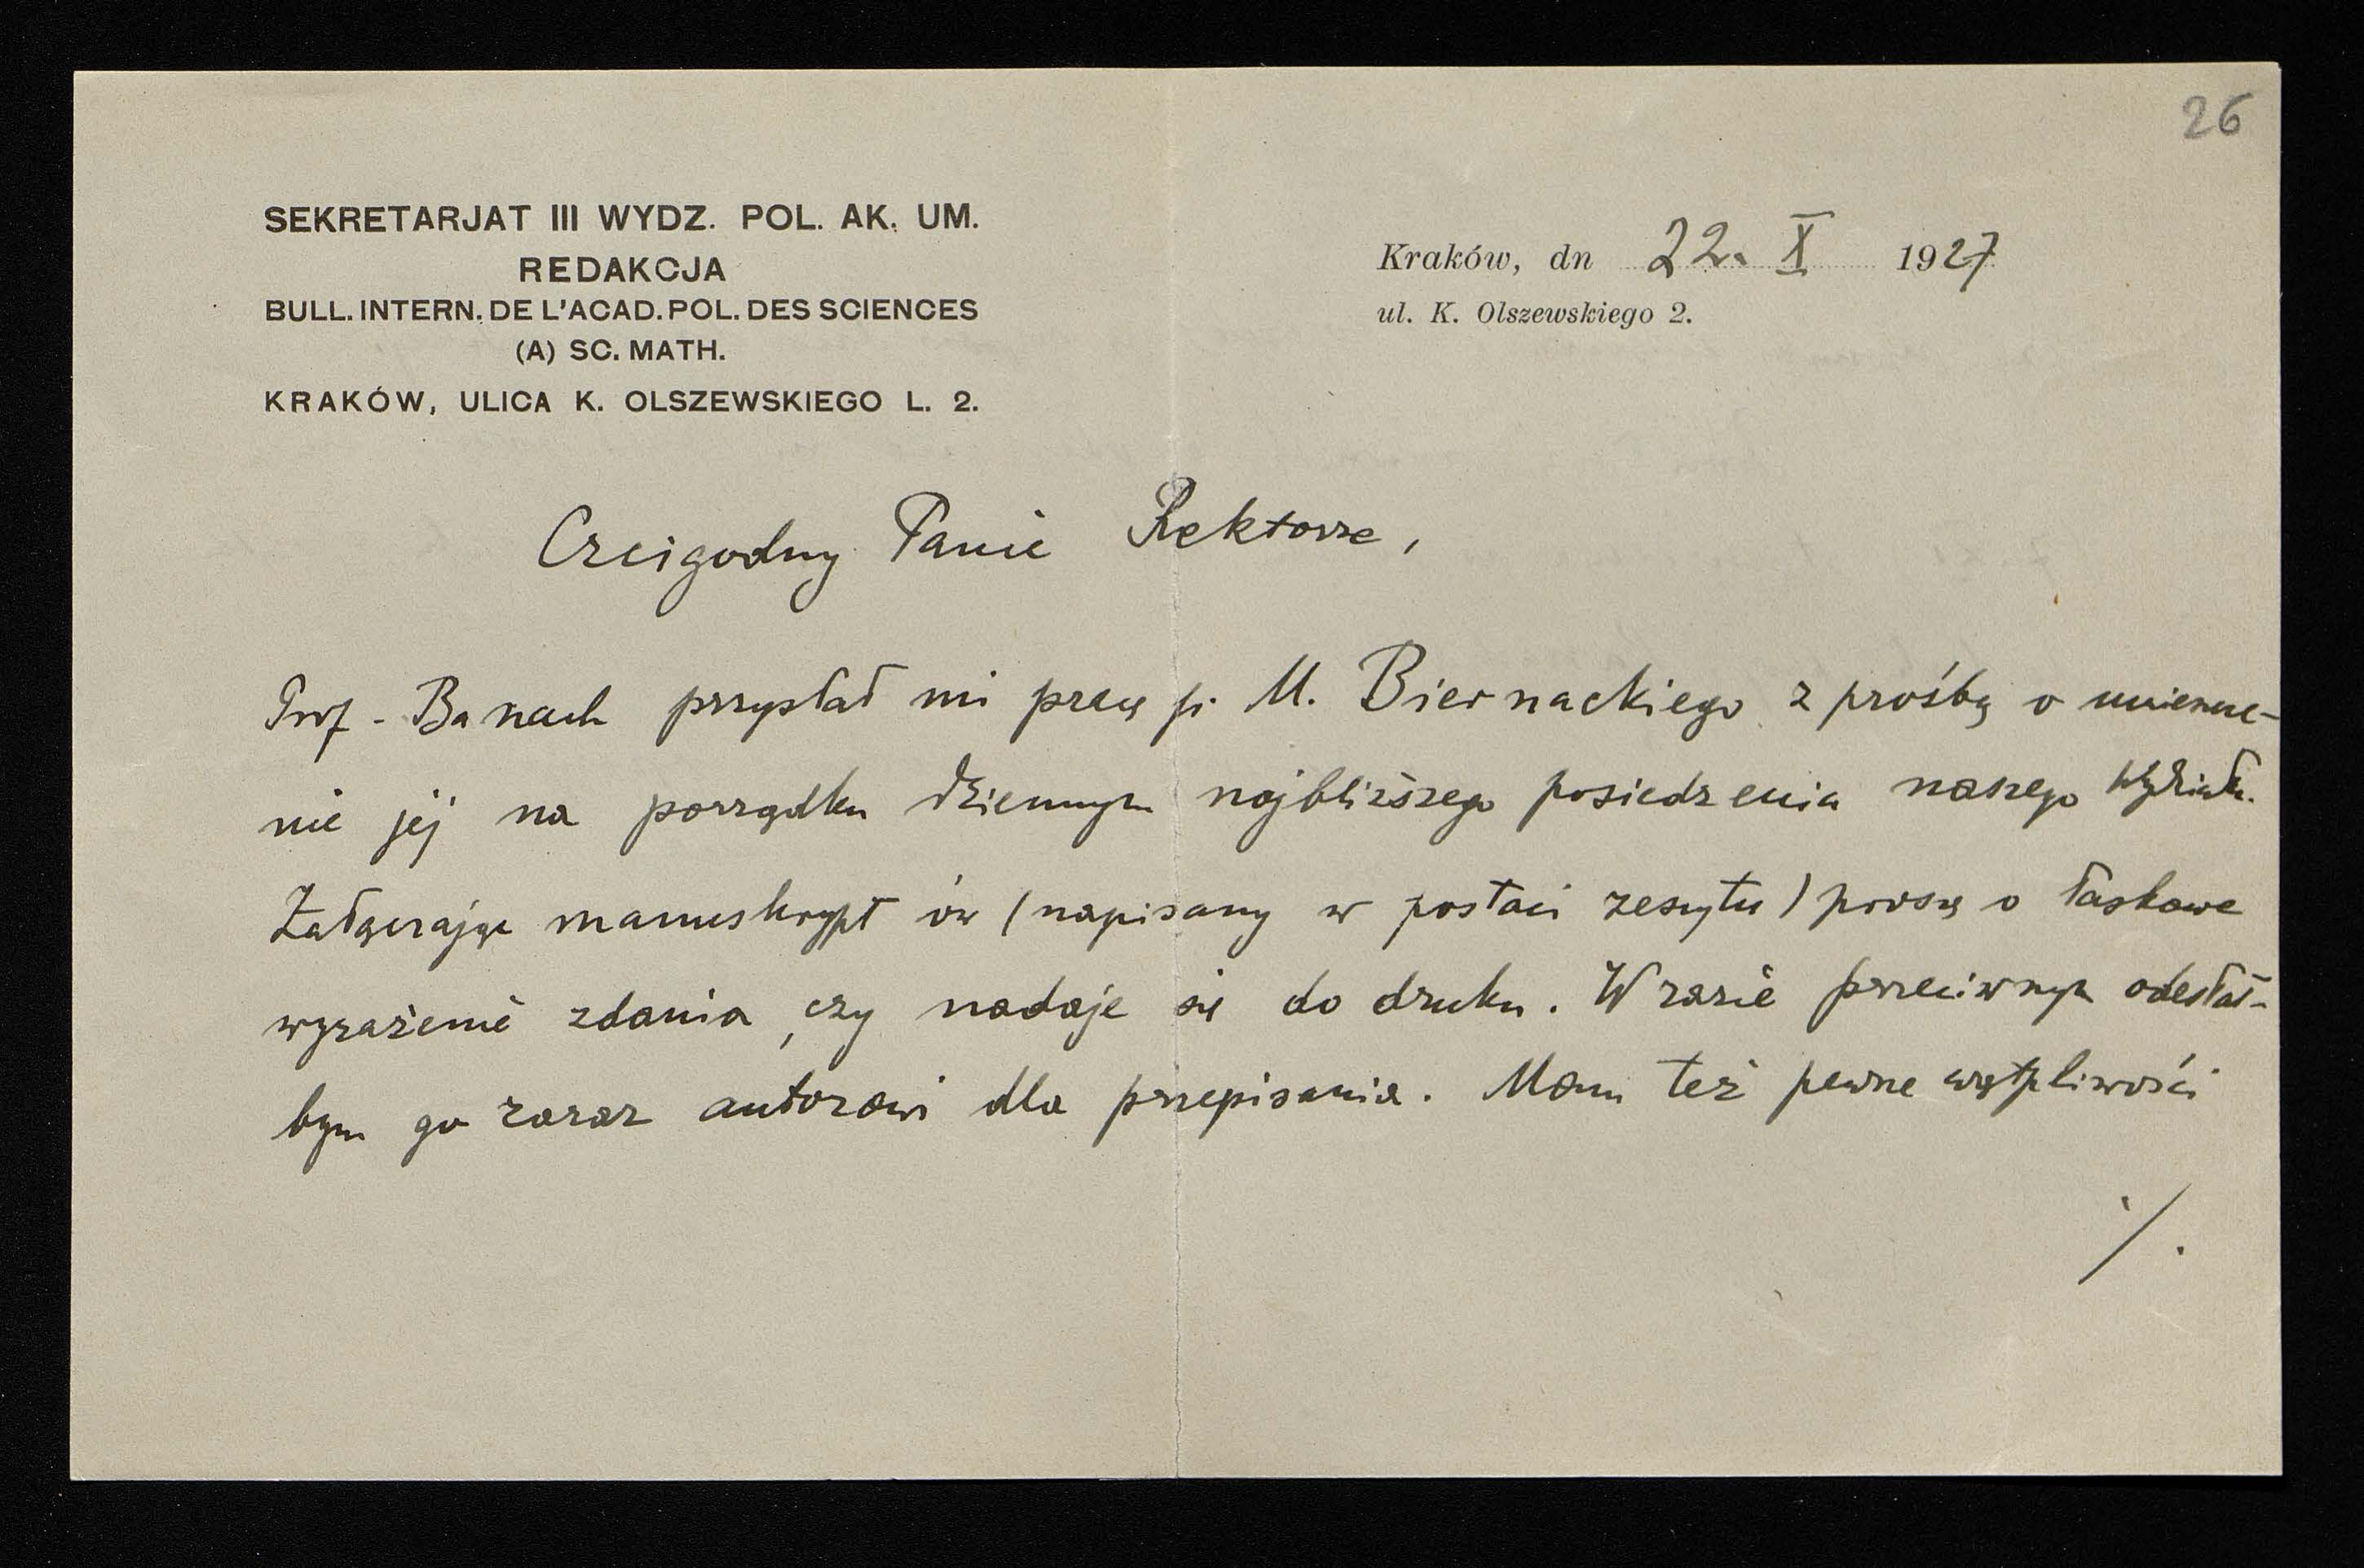 26
SEKRETARJAT III WYDZ. POL. AK. UM.
REDAKCJA
BULL. INTERN. DE L'ACAD. POL. DES SCIENCES
(A) SC. MATH.
KRAKÓW, ULICA K. OLSZEWSKIEGO L. 2.
Kraków, dn 22. X 1927
ul. K. Olszewskiego 2.
Czcigodny Panie Rektorze,
Prof. Banach przysłał mi pracę p. M. Biernackiego z prośbą o umieszcze-
nie jej na porządku dziennym najbliższego posiedzenia naszego Wydziału.
Załączając manuskrypt ów (napisany w postaci zeszytu) proszę o łaskawe
wyrażenie zdania, czy nadaje się do druku. W razie przeciwnym odesłał-
bym go zaraz autorowi dla przepisania. Mam też pewne wątpliwości
./.